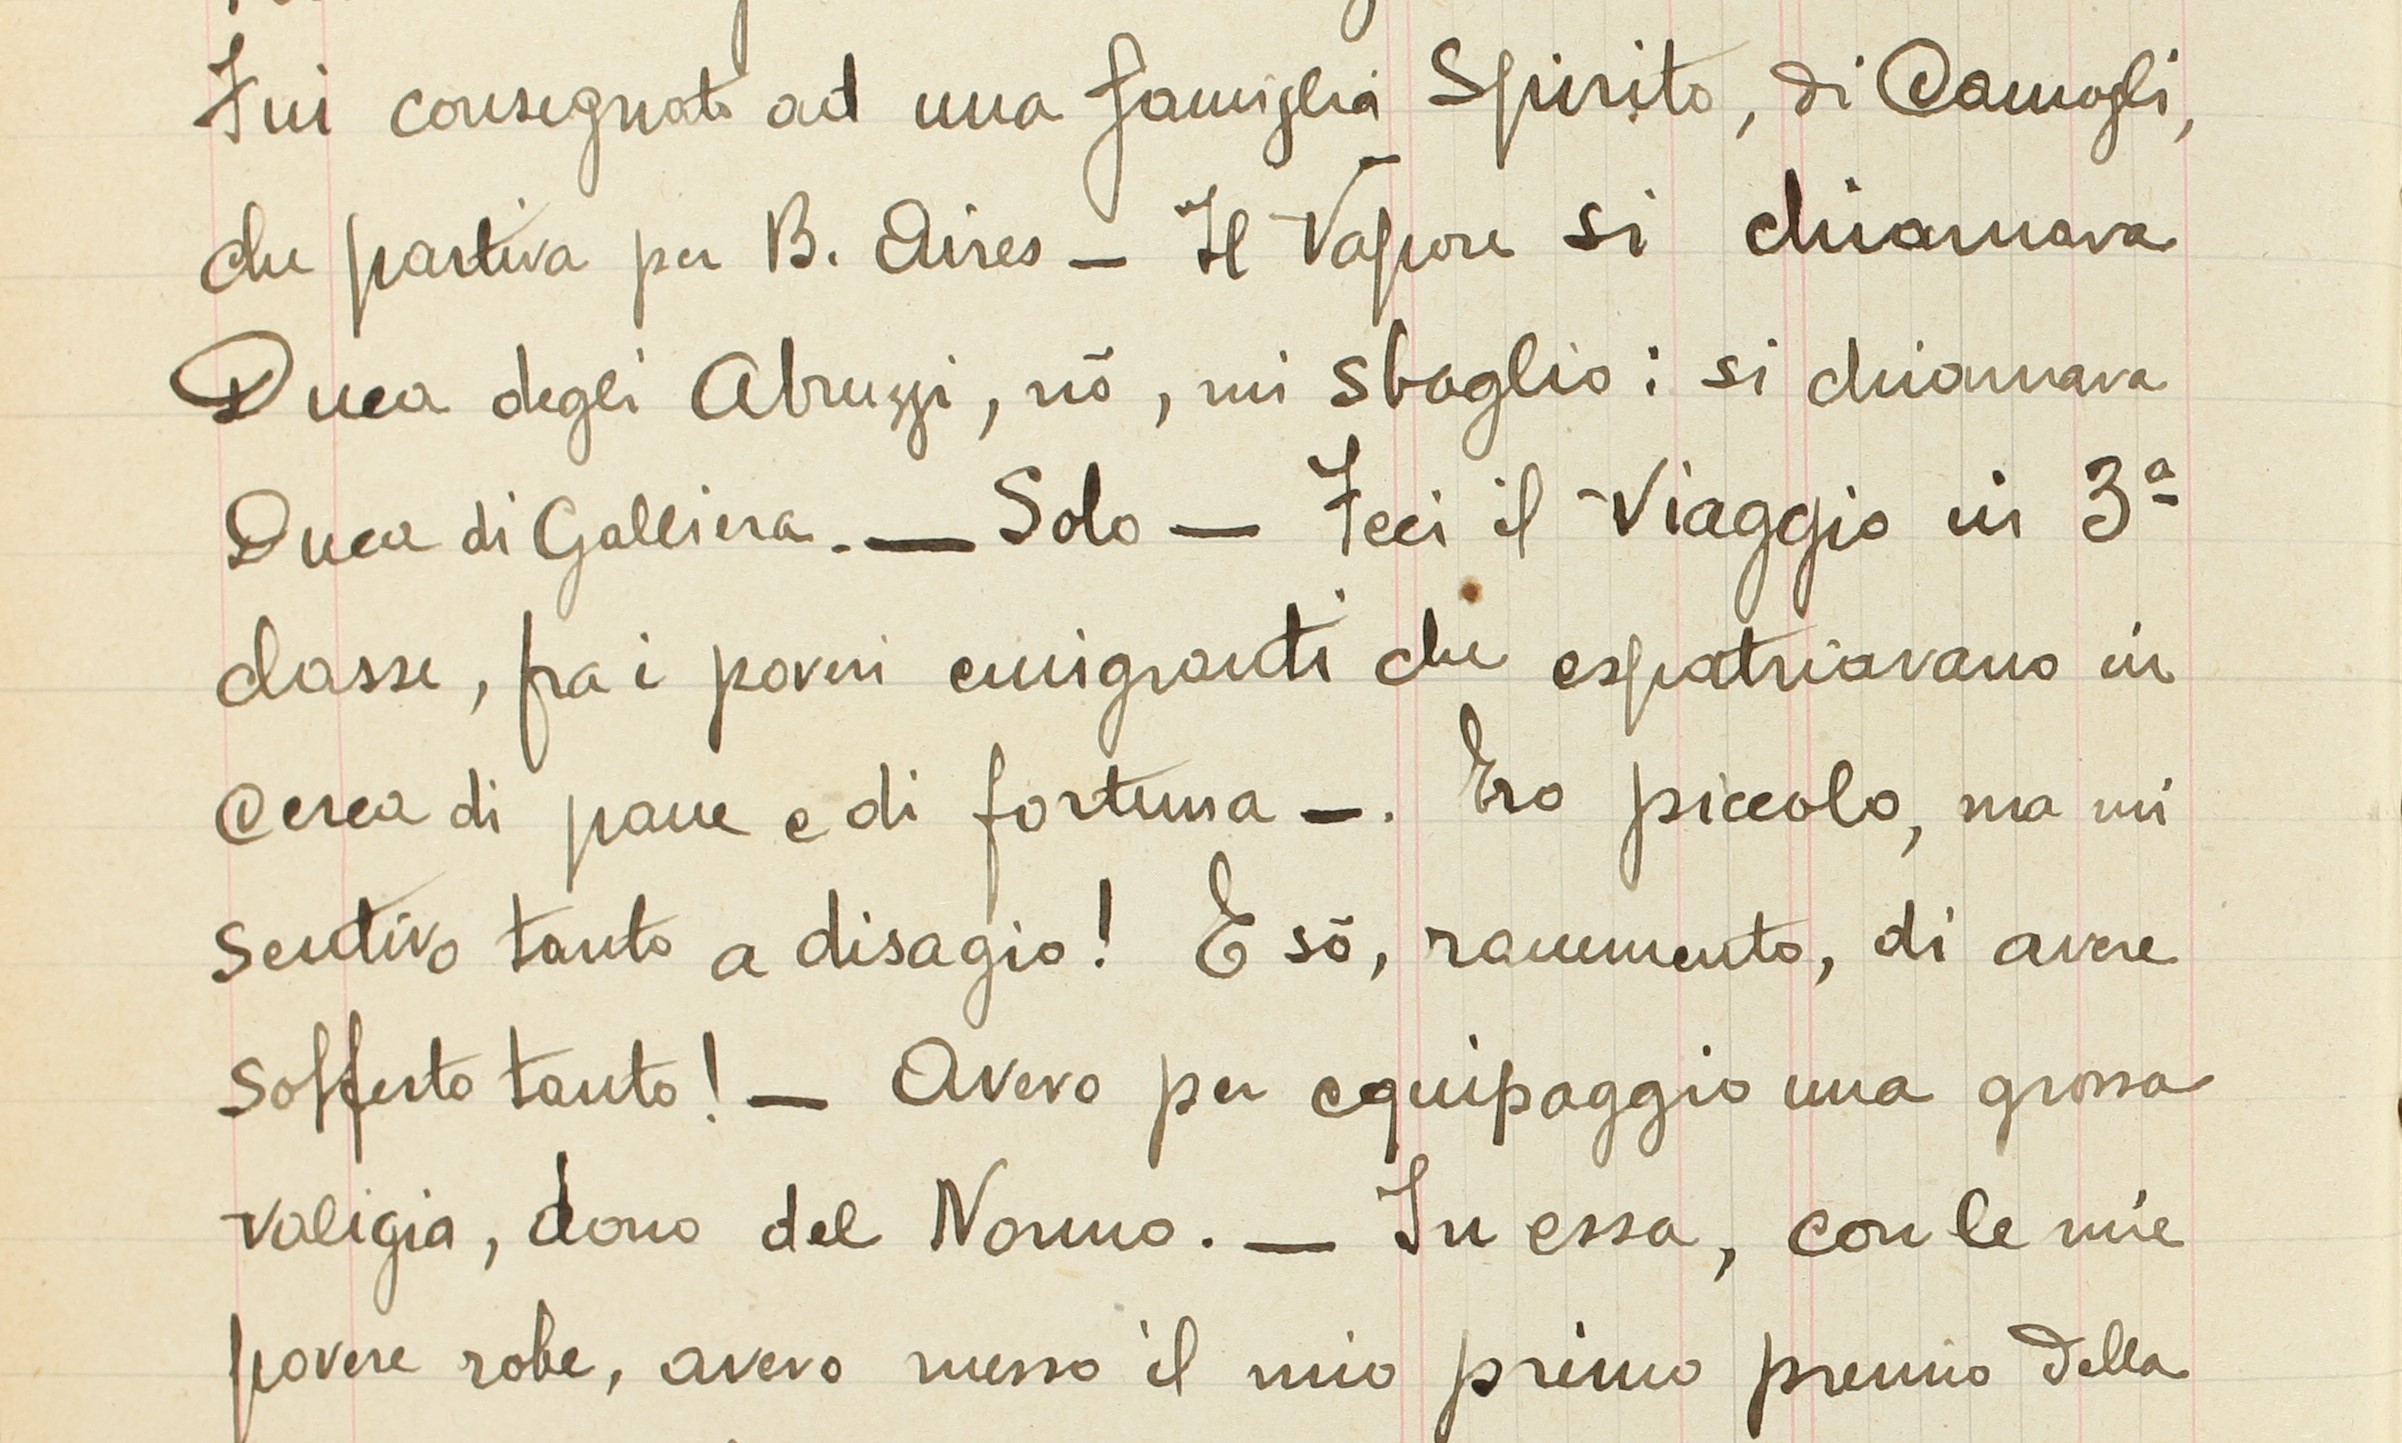 Fui consegnato ad una famiglia Spirito, di Camogli,
che partiva per B. Aires — Il Vapore si chiamava
Duca degli Abruzzi, nõ, mi sbaglio: si chiamava
Duca di Galliera. — Solo — Feci il Viaggio in 3ª
classe, fra i poveri emigranti che espatriavano in
cerca di pane e di fortuna —. Ero piccolo, ma mi
sentivo tanto a disagio! E sõ, rammento, di avere
sofferto tanto! — Avevo per equipaggio una grossa
valigia, dono del Nonno. — In essa, con le mie
povere robe, avevo messo il mio primo premio della